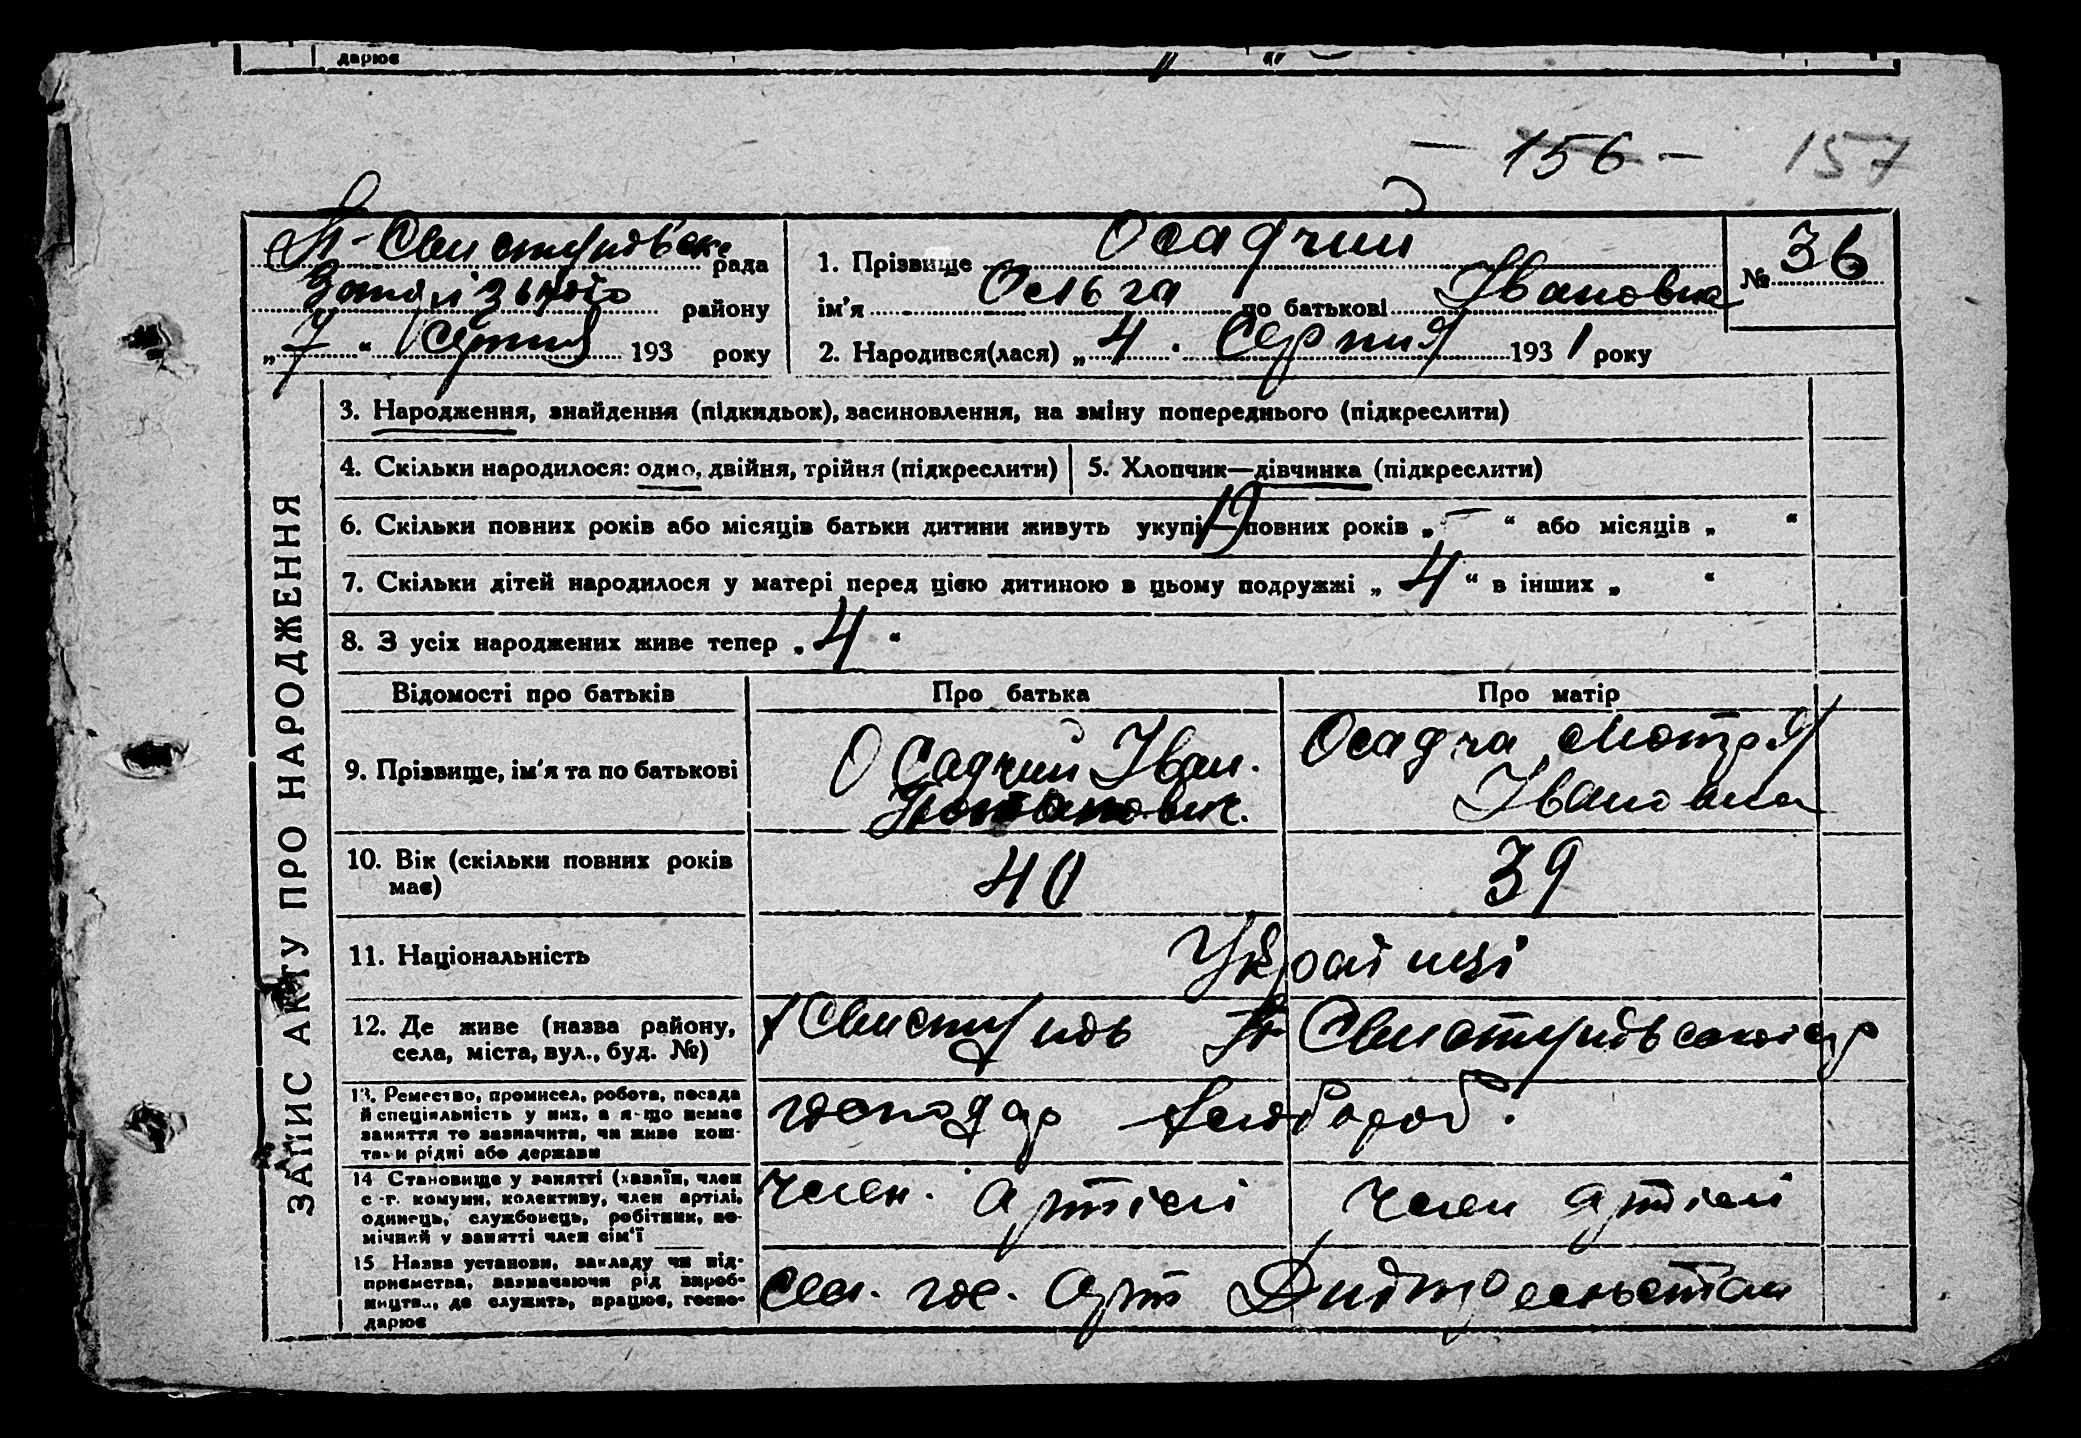 дарює
156 - 157
рада
району
„7“ Серпня 193 року
1. Прізвище Осадчий
ім'я Ольга по батькові Івановна
№ 36
2. Народився(лася) „4. Серпня 1931 року
ЗАПИС АКТУ ПРО НАРОДЖЕННЯ
3. Народження, знайдення (підкидьок), засиновлення, на зміну попереднього (підкреслити)
4. Скільки народилося: одно, двійня, трійня (підкреслити)
5. Хлопчик—дівчинка (підкреслити)
6. Скільки повних років або місяців батьки дитини живуть укупі—19 повних років „—“ або місяців „ “
7. Скільки дітей народилося у матері перед цією дитиною в цьому подружжі „4“ в інших „ “
8. З усіх народжених живе тепер „4“
Відомості про батьків Про батька Про матір
9. Прізвище, ім'я та по батькові
Осадчий Іван.
Потапович.
Осадча Мотря
Івановна
10. Вік (скільки повних років
має)
40 39
11. Національність Українці
12. Де живе (назва району,
села, міста, вул., буд. №)
13. Ремество, промисел, робота, посада
й спеціяльність у них, а якщо немає
заняття то зазначити, чи живе кош-
тами рідні або держави
господар хлібороб.
14 Становище у занятті (хазяїн, член
с.-г. комуни, колективу, член артілі,
одинець, службовець, робітник, по-
мічний у занятті член сім'ї
член. артілі член артілі
15 Назва установи, закладу чи під-
приємства, зазначаючи рід вироб-
ництва, де служить, працює, госпо-
дарює